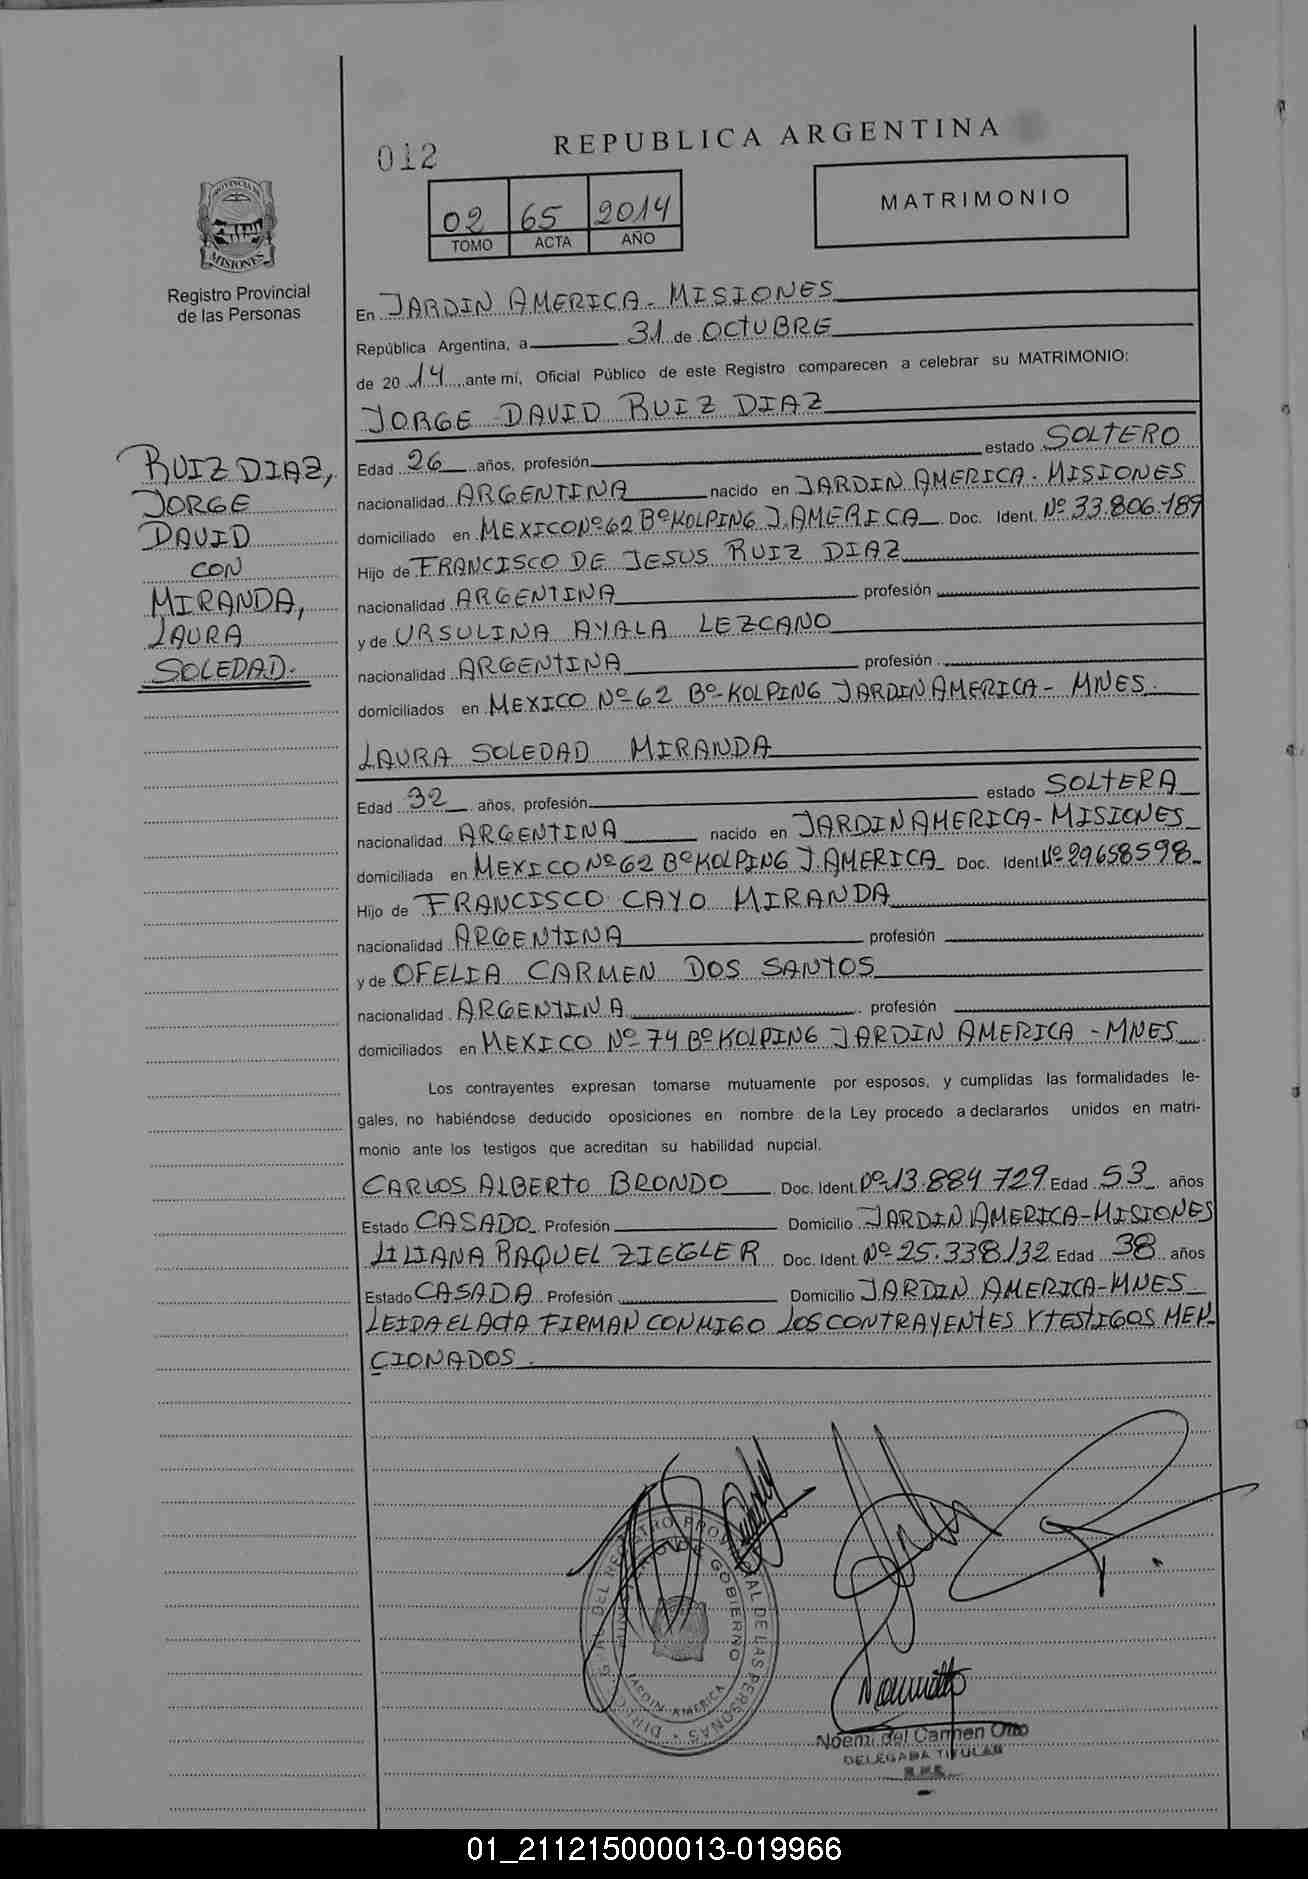 012
REPUBLICA ARGENTINA
02 65 2014
TOMO ACTA AÑO
MATRIMONIO
PROVINCIA DE
MISIONES
Registro Provincial
de las Personas
RUIZ DIAZ,
JORGE
DAVID
CON
MIRANDA,
LAURA
SOLEDAD.
En JARDIN AMERICA - MISIONES
República Argentina, a 31 de OCTUBRE
de 2014 ante mí, Oficial Público de este Registro comparecen a celebrar su MATRIMONIO:
JORGE DAVID RUIZ DIAZ
Edad 26 años, profesión estado SOLTERO
nacionalidad ARGENTINA nacido en JARDIN AMERICA - MISIONES
domiciliado en MEXICO Nº 62 Bº KOLPING J. AMERICA Doc. Ident. Nº 33.806.189
Hijo de FRANCISCO DE JESUS RUIZ DIAZ
nacionalidad ARGENTINA profesión
y de URSULINA AYALA LEZCANO
nacionalidad ARGENTINA profesión
domiciliados en MEXICO Nº 62 Bº KOLPING JARDIN AMERICA - MNES.
LAURA SOLEDAD MIRANDA
Edad 32 años, profesión estado SOLTERA
nacionalidad ARGENTINA nacido en JARDIN AMERICA - MISIONES
domiciliada en MEXICO Nº 62 Bº KOLPING J. AMERICA Doc. Ident. Nº 29658598
Hijo de FRANCISCO CAYO MIRANDA
nacionalidad ARGENTINA profesión
y de OFELIA CARMEN DOS SANTOS
nacionalidad ARGENTINA profesión
domiciliados en MEXICO Nº 74 Bº KOLPING JARDIN AMERICA - MNES
Los contrayentes expresan tomarse mutuamente por esposos, y cumplidas las formalidades le-
gales, no habiéndose deducido oposiciones en nombre de la Ley procedo a declararlos unidos en matri-
monio ante los testigos que acreditan su habilidad nupcial.
CARLOS ALBERTO BRONDO Doc. Ident. Nº 13.884.729 Edad 53 años
Estado CASADO Profesión Domicilio JARDIN AMERICA - MISIONES
LILIANA RAQUEL ZIEGLER Doc. Ident. Nº 25.338.132 Edad 38 años
Estado CASADA Profesión Domicilio JARDIN AMERICA - MNES
LEIDA EL ACTA FIRMAN CONMIGO LOS CONTRAYENTES Y TESTIGOS MEN-
CIONADOS.
DEL REGISTRO PROVINCIAL DE LAS PERSONAS
GOBIERNO
JARDIN AMERICA
Noemi del Carmen Otto
DELEGADA TITULAR
01_211215000013-019966